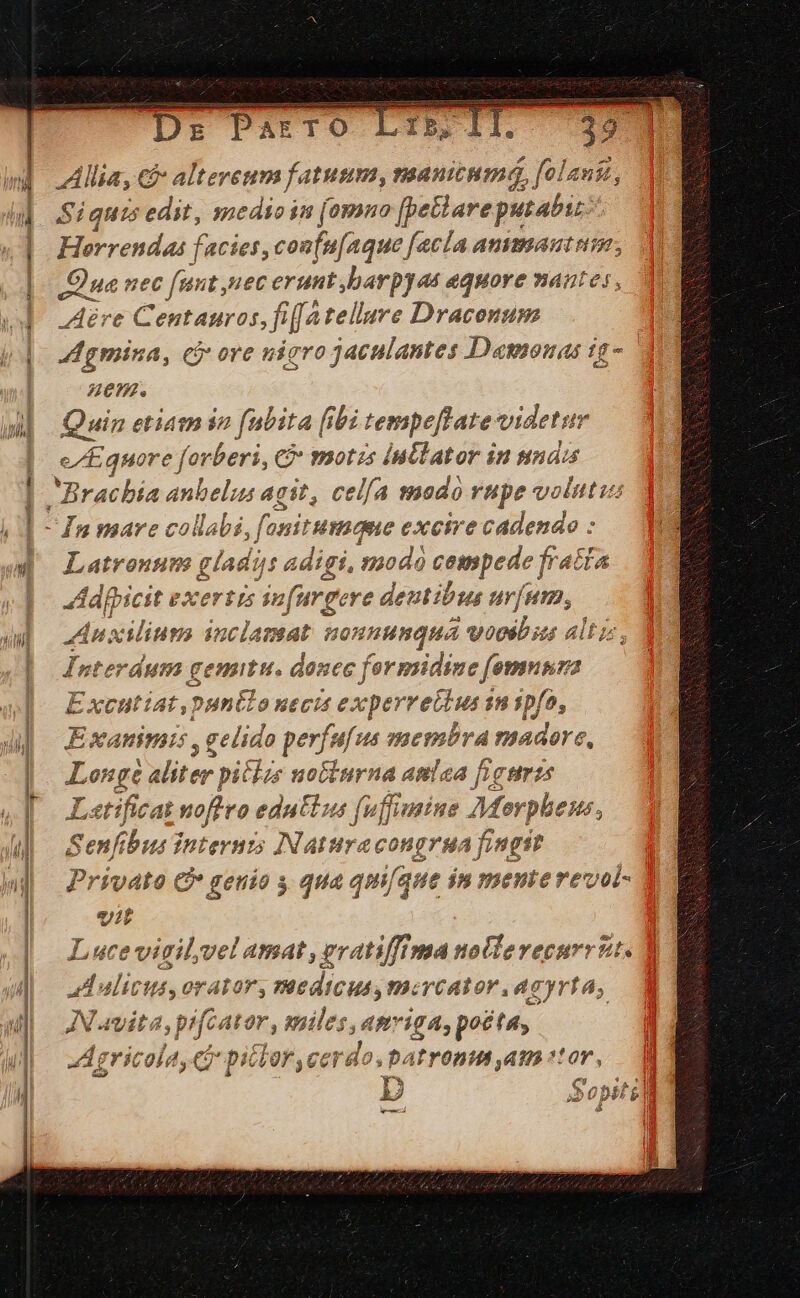 De Parto Lib, II. 39
Allia, & altercum fatuum, manicumq́, ſolanū,
Siquis edit, medio in ſomno ſpectare putabit
Horrendas facies, confuſaque ſæcla animantum,
Quæ nec ſunt, nec erunt, harpyas æquore nantes,
Aëre Centauros, fiſſâ tellure Draconum
Agmina, & ore nigro jaculantes Dæmonas ig-
nem.
Quin etiam in ſubita ſibi tempeſtate videtur
Æquore ſorberi, & motis luctator in undis
Brachia anhelus agit, celſa modò rupe volutus
In mare collabi, ſonitumque excire cadendo :
Latronum gladijs adigi, modò compede fracta
Adſpicit exertis inſurgere dentibus urſum,
Auxilium inclamat nonnunquā vocibus altis,
Interdum gemitu. donec formidine ſomnum
Excutiat, puncto necis experrectus in ipſo,
Exanimis, gelido perfuſus membra madore,
Longè aliter pictis nocturna aulæa figuris
Lætificat noſtro eductus ſuffimine Morpheus,
Senſibus internis Naturæ congrua fingit
Privato & genio ; quæ quiſque in mente revol-
vit
Luce vigil, vel amat, gratiſſima nocte recurrūt.
Aulicus, orator, medicus, mercator, agyrta,
Navita, piſcator, miles, auriga, poëta,
Agricola, & pictor, cerdo, patronus, amator,
D Sopiti